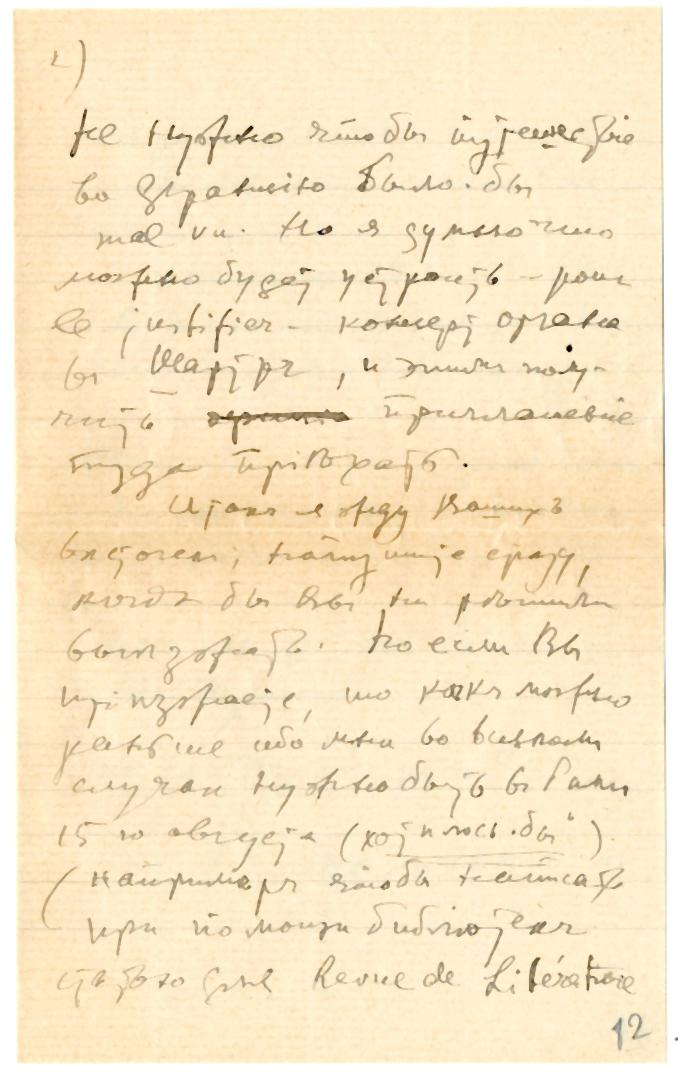 2)
не нужно чтобы путешествіе
во Францію было-бы
mal vu. Но я думаю что
можно будетъ устроить – pour
le justifier – концертъ органа
въ Шартрѣ, и этимъ полу-
чить приглашеніе
туда пріѣхать.
Итакъ я жду Вашихъ
вѣстей; напишите сразу,
когда бы Вы ни рѣшили
выѣзжать. Но если Вы
пріѣзжаете, то какъ можно
раньше ибо мнѣ во всякомъ
случаѣ нужно быть въ
15го августа (хотѣлось-бы)
(напримѣръ чтобы написать
при помощи библіотекъ
статью для Revue de Litérature
12